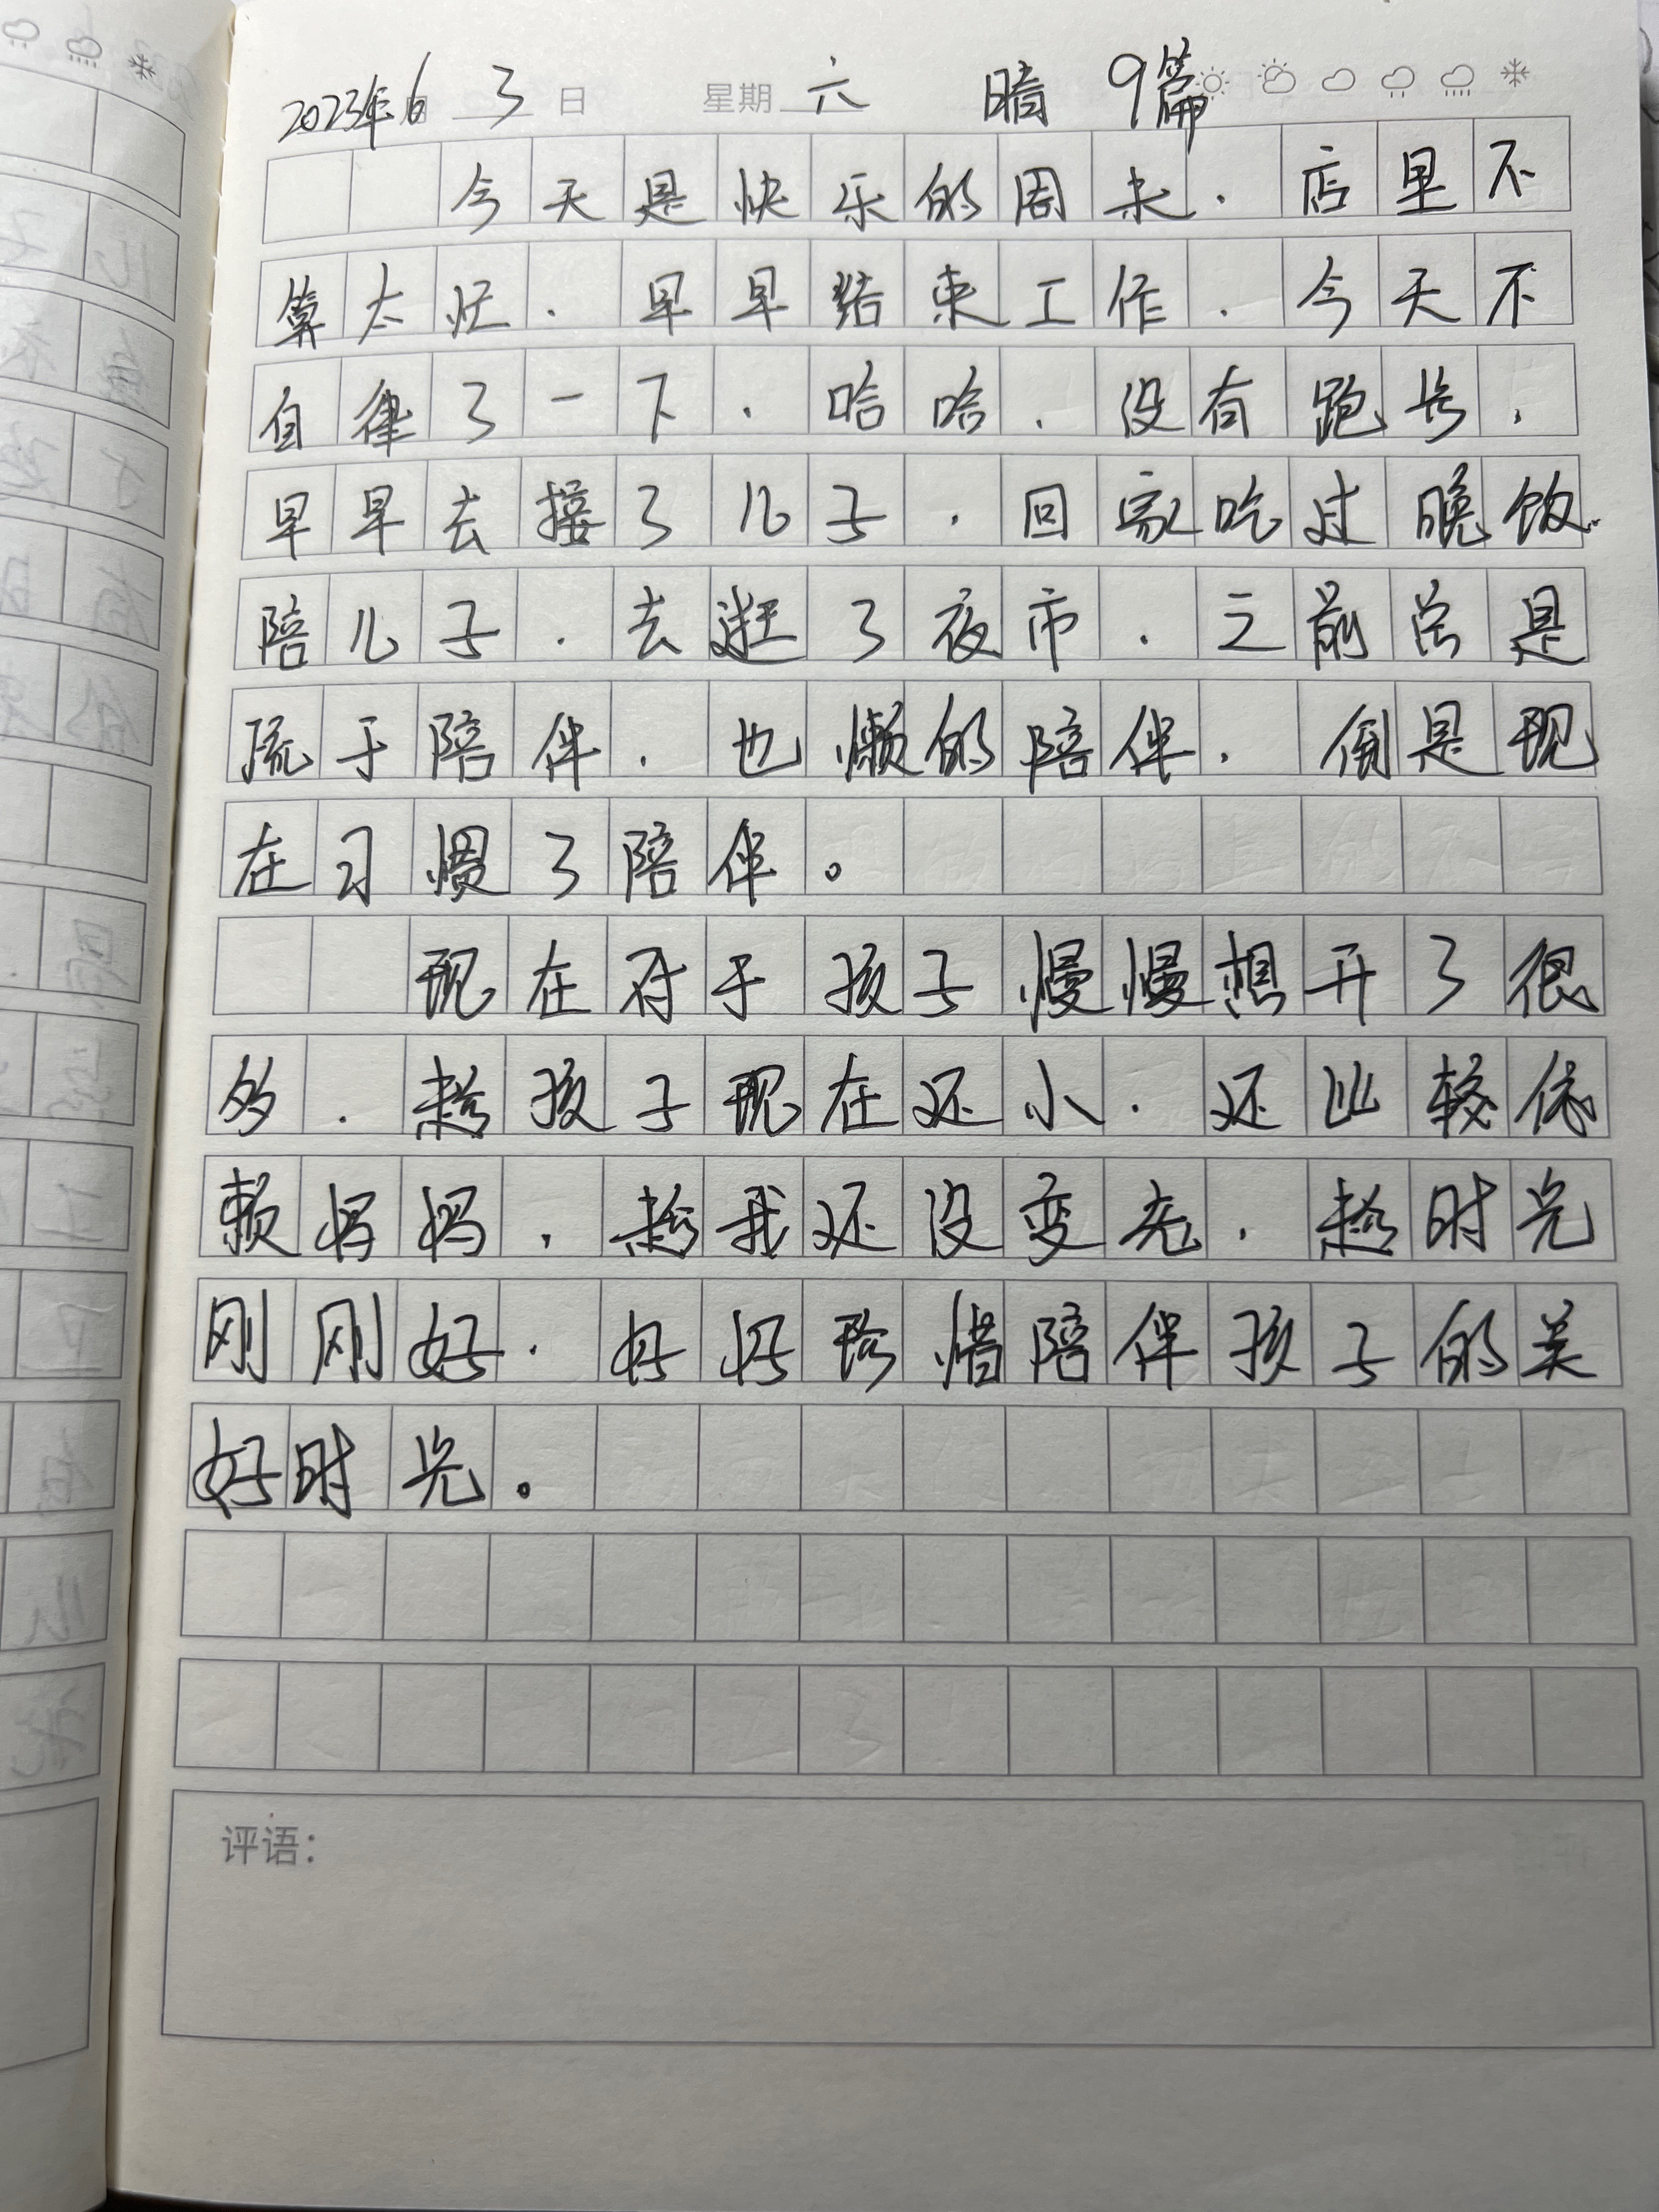 2023年6月3日 星期六 暗 9篇
今天是快乐的周末.店里不
算太忙.早早结束工作.今天不
自律了一下.哈哈.没有跑步,
早早去接了儿子,回家吃过晚饭.
陪儿子.去逛了夜市.之前总是
疏于陪伴.也懒的陪伴.倒是现
在习惯了陪伴。
现在对于孩子慢慢想开了很
多.趁孩子现在还小.还比较依
赖妈妈,趁我还没变老.趁时光
刚刚好.好好珍惜陪伴孩子的美
好时光。
评语: